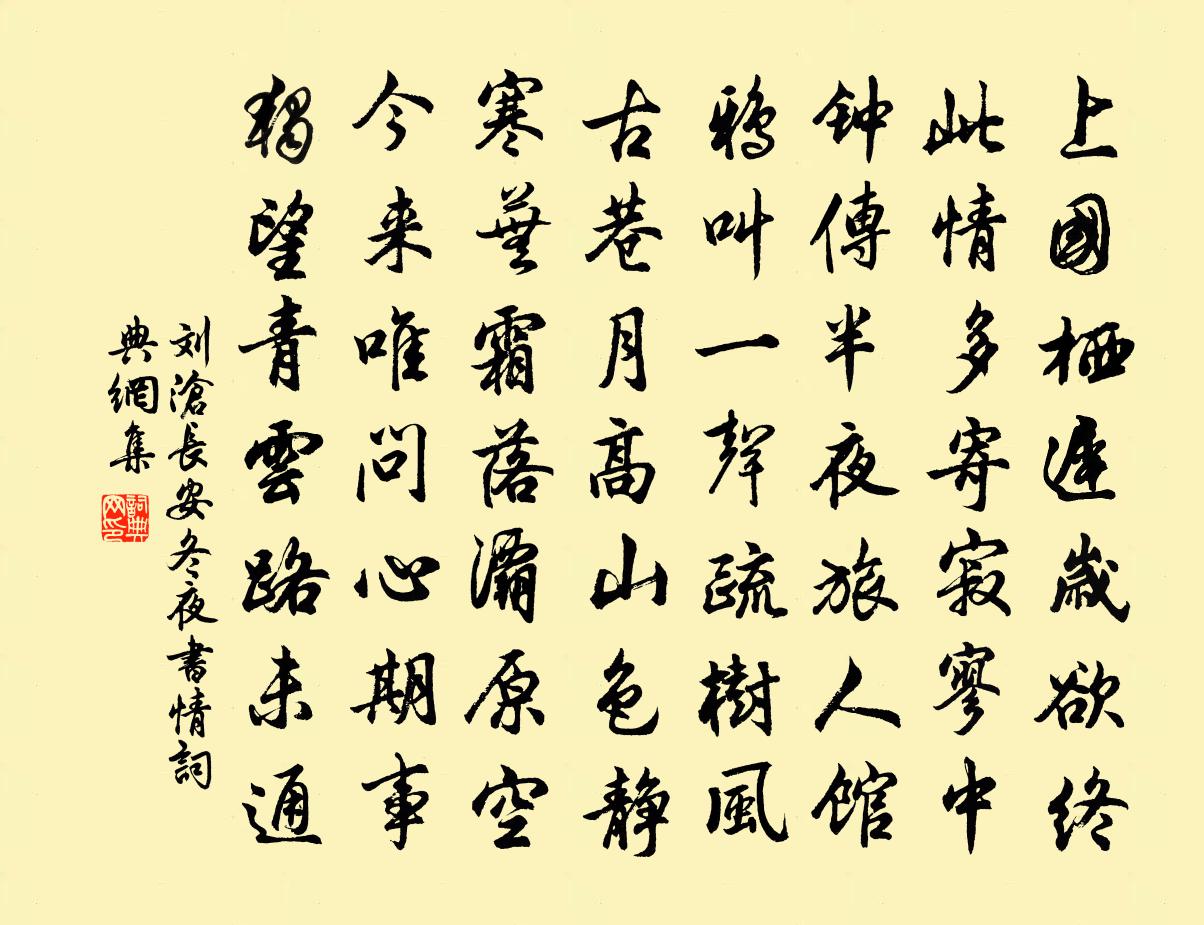 上國栖遲歲欲终
此情多寄寂寥中
钟傳半夜旅人館
鴉叫一聲疏樹風
古巷月高山色静
寒蕪霜落灞原空
今来唯問心期事
獨望青雲路未通
刘滄長安冬夜書情詞
典網集
詞典
网印